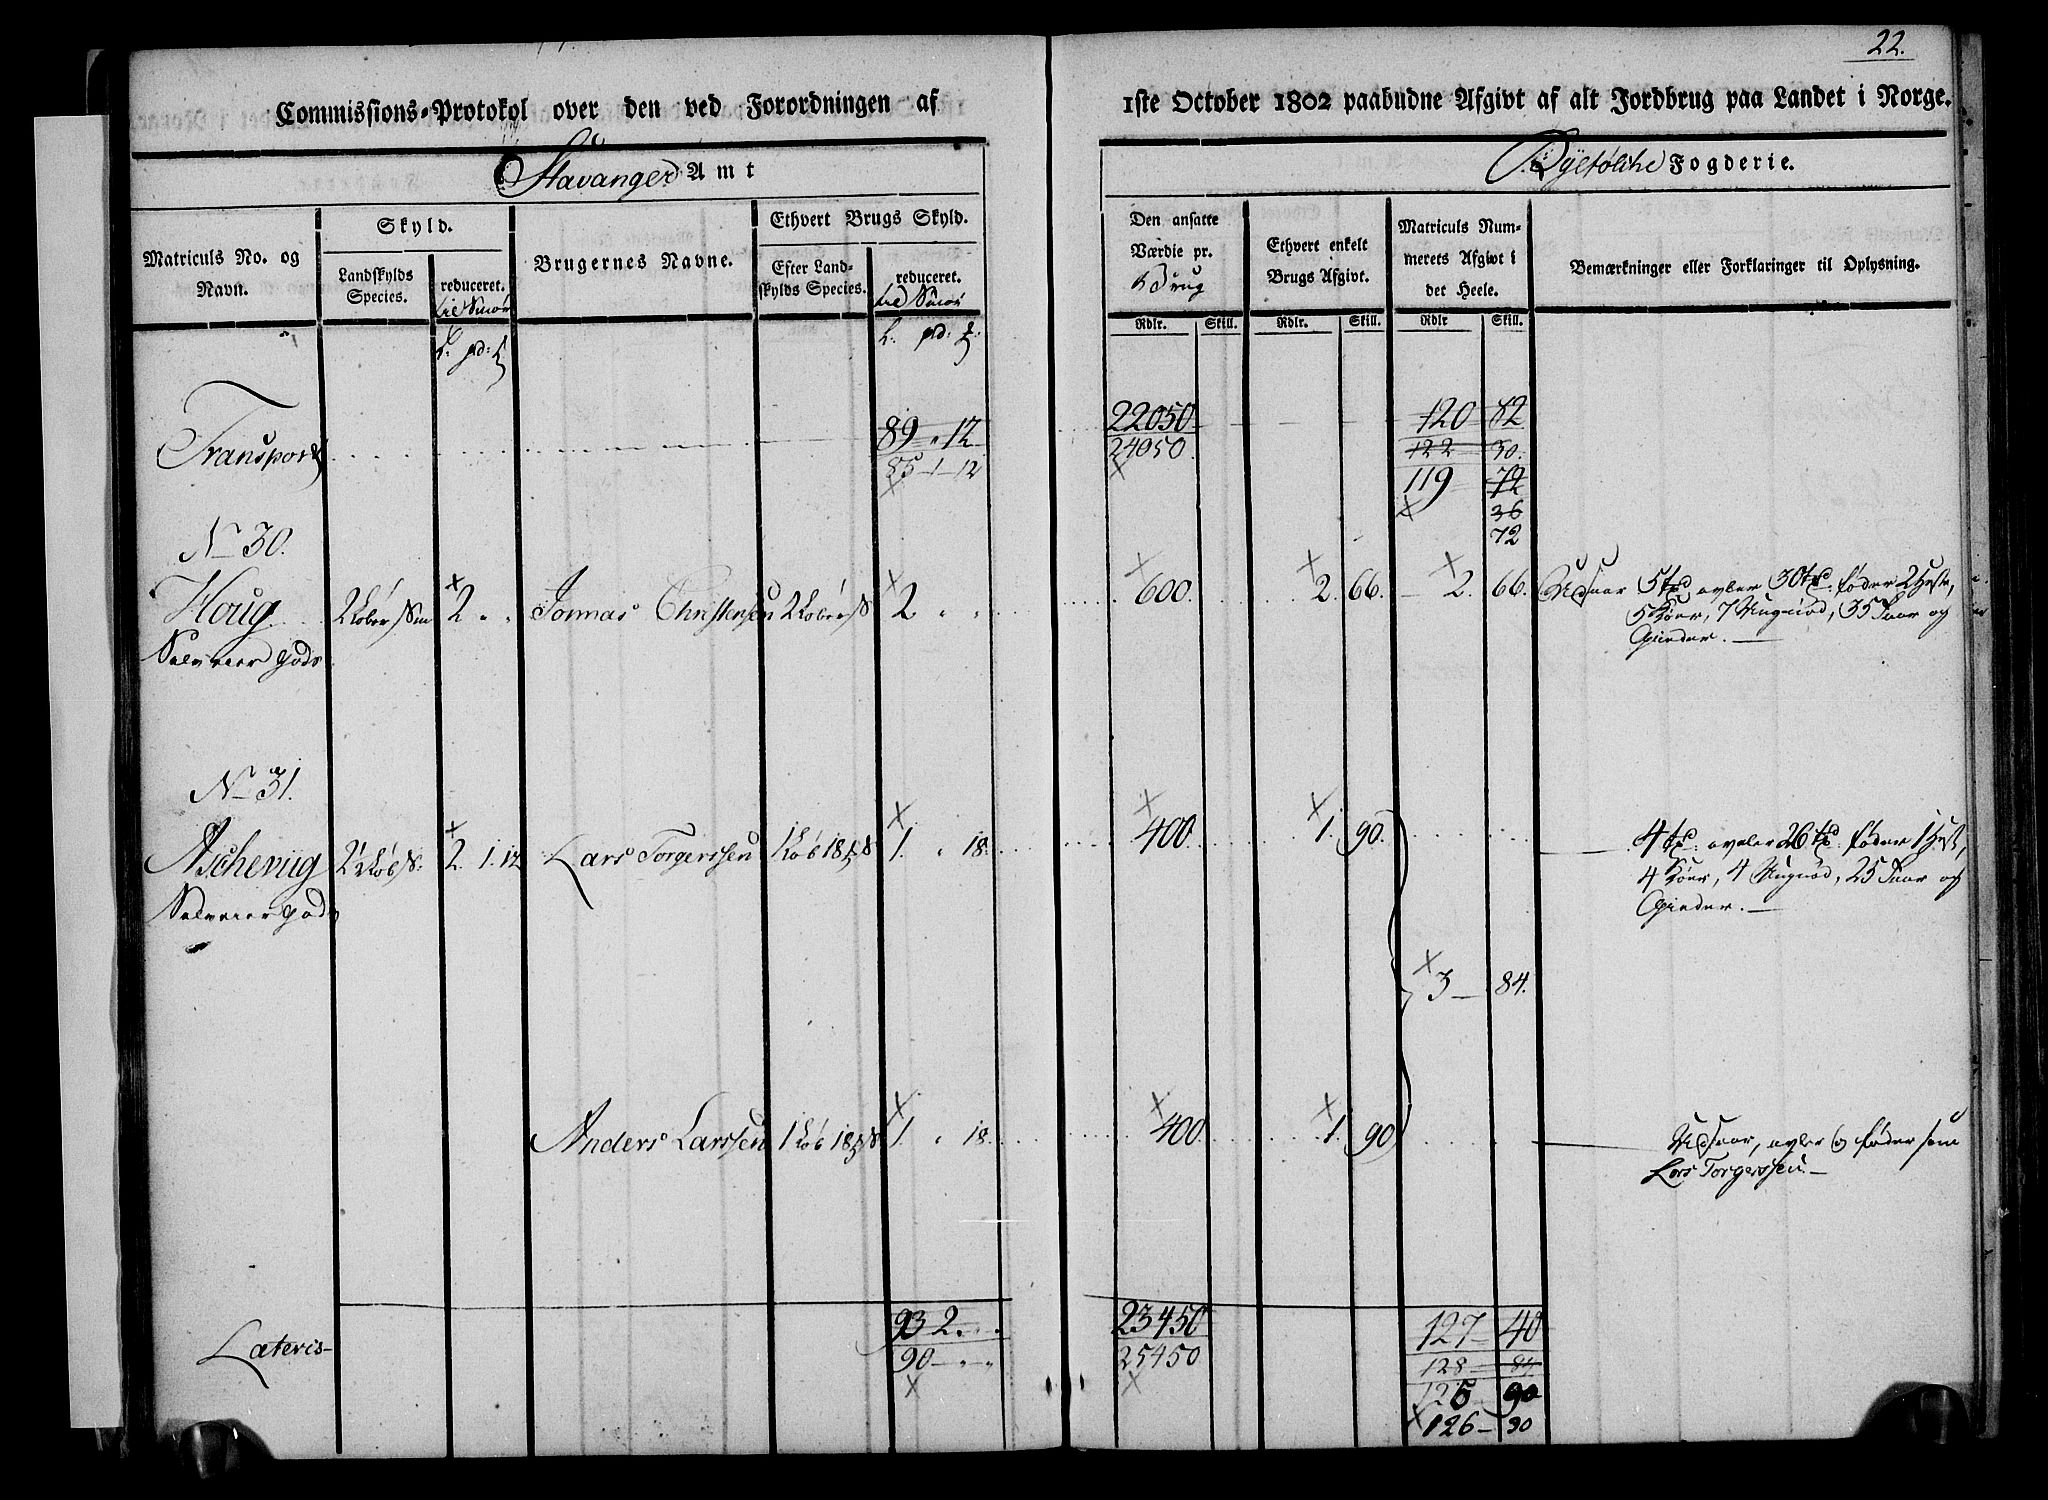 22.
Commissions-Protokol over den ved Forordningen af 1ste October 1802 paabudne Afgivt af alt Jordbrug paa Landet i Norge.
Stavanger Amt
Ryefølche Fogderie.
Matriculs No. og Navn.
Skyld.
Landskylds Species.
reduceret.
til Smør
Brugernes Navne.
Ethvert Brugs Skyld.
Efter Landskylds Species.
reduceret.
til Smør
Den ansatte Værdie pr.
Brug
Ethvert enkelt Brugs Afgivt.
Matriculs Nummerets Afgivt i det Heele.
Bemærkninger eller Forklaringer til Oplysning.
Rdlr. Skill. Rdlr. Skill. Rdlr Skill.
Transport 89 " 12 22050 120 82
85-1-12 24050 122 50.
119 72
36
72
No 30.
Houg 2 Løber Sm 2 " " Jonnas Christensen 2 Løber S 2 " " 600. 2. 66. 2. 66. Udsaar 5 td avler 30 td. føder 2 Heste,
Selveier gods 5 Køer, 7 Ungnød, 35 Faar og
Gieder.
No 31.
Aschevig 2½ Løb S. 2. 1. 12 Lars Torgerssen 1 Løb 18 1. " 18. 400. 1. 90. 4 td. avler 26 td. føder 1 Hest,
Selveier gods 4 Køer, 4 Ungnød, 25 Faar og
Gieder.
3 84.
Anders Larssen 1 Løb 18 1. " 18. 400. 1. 90 Udsaar, avler og føder som
Lars Torgerssen.
Lateris 93 2. 23450 127 40
90 " " 25450 128 84
125 90
126 30